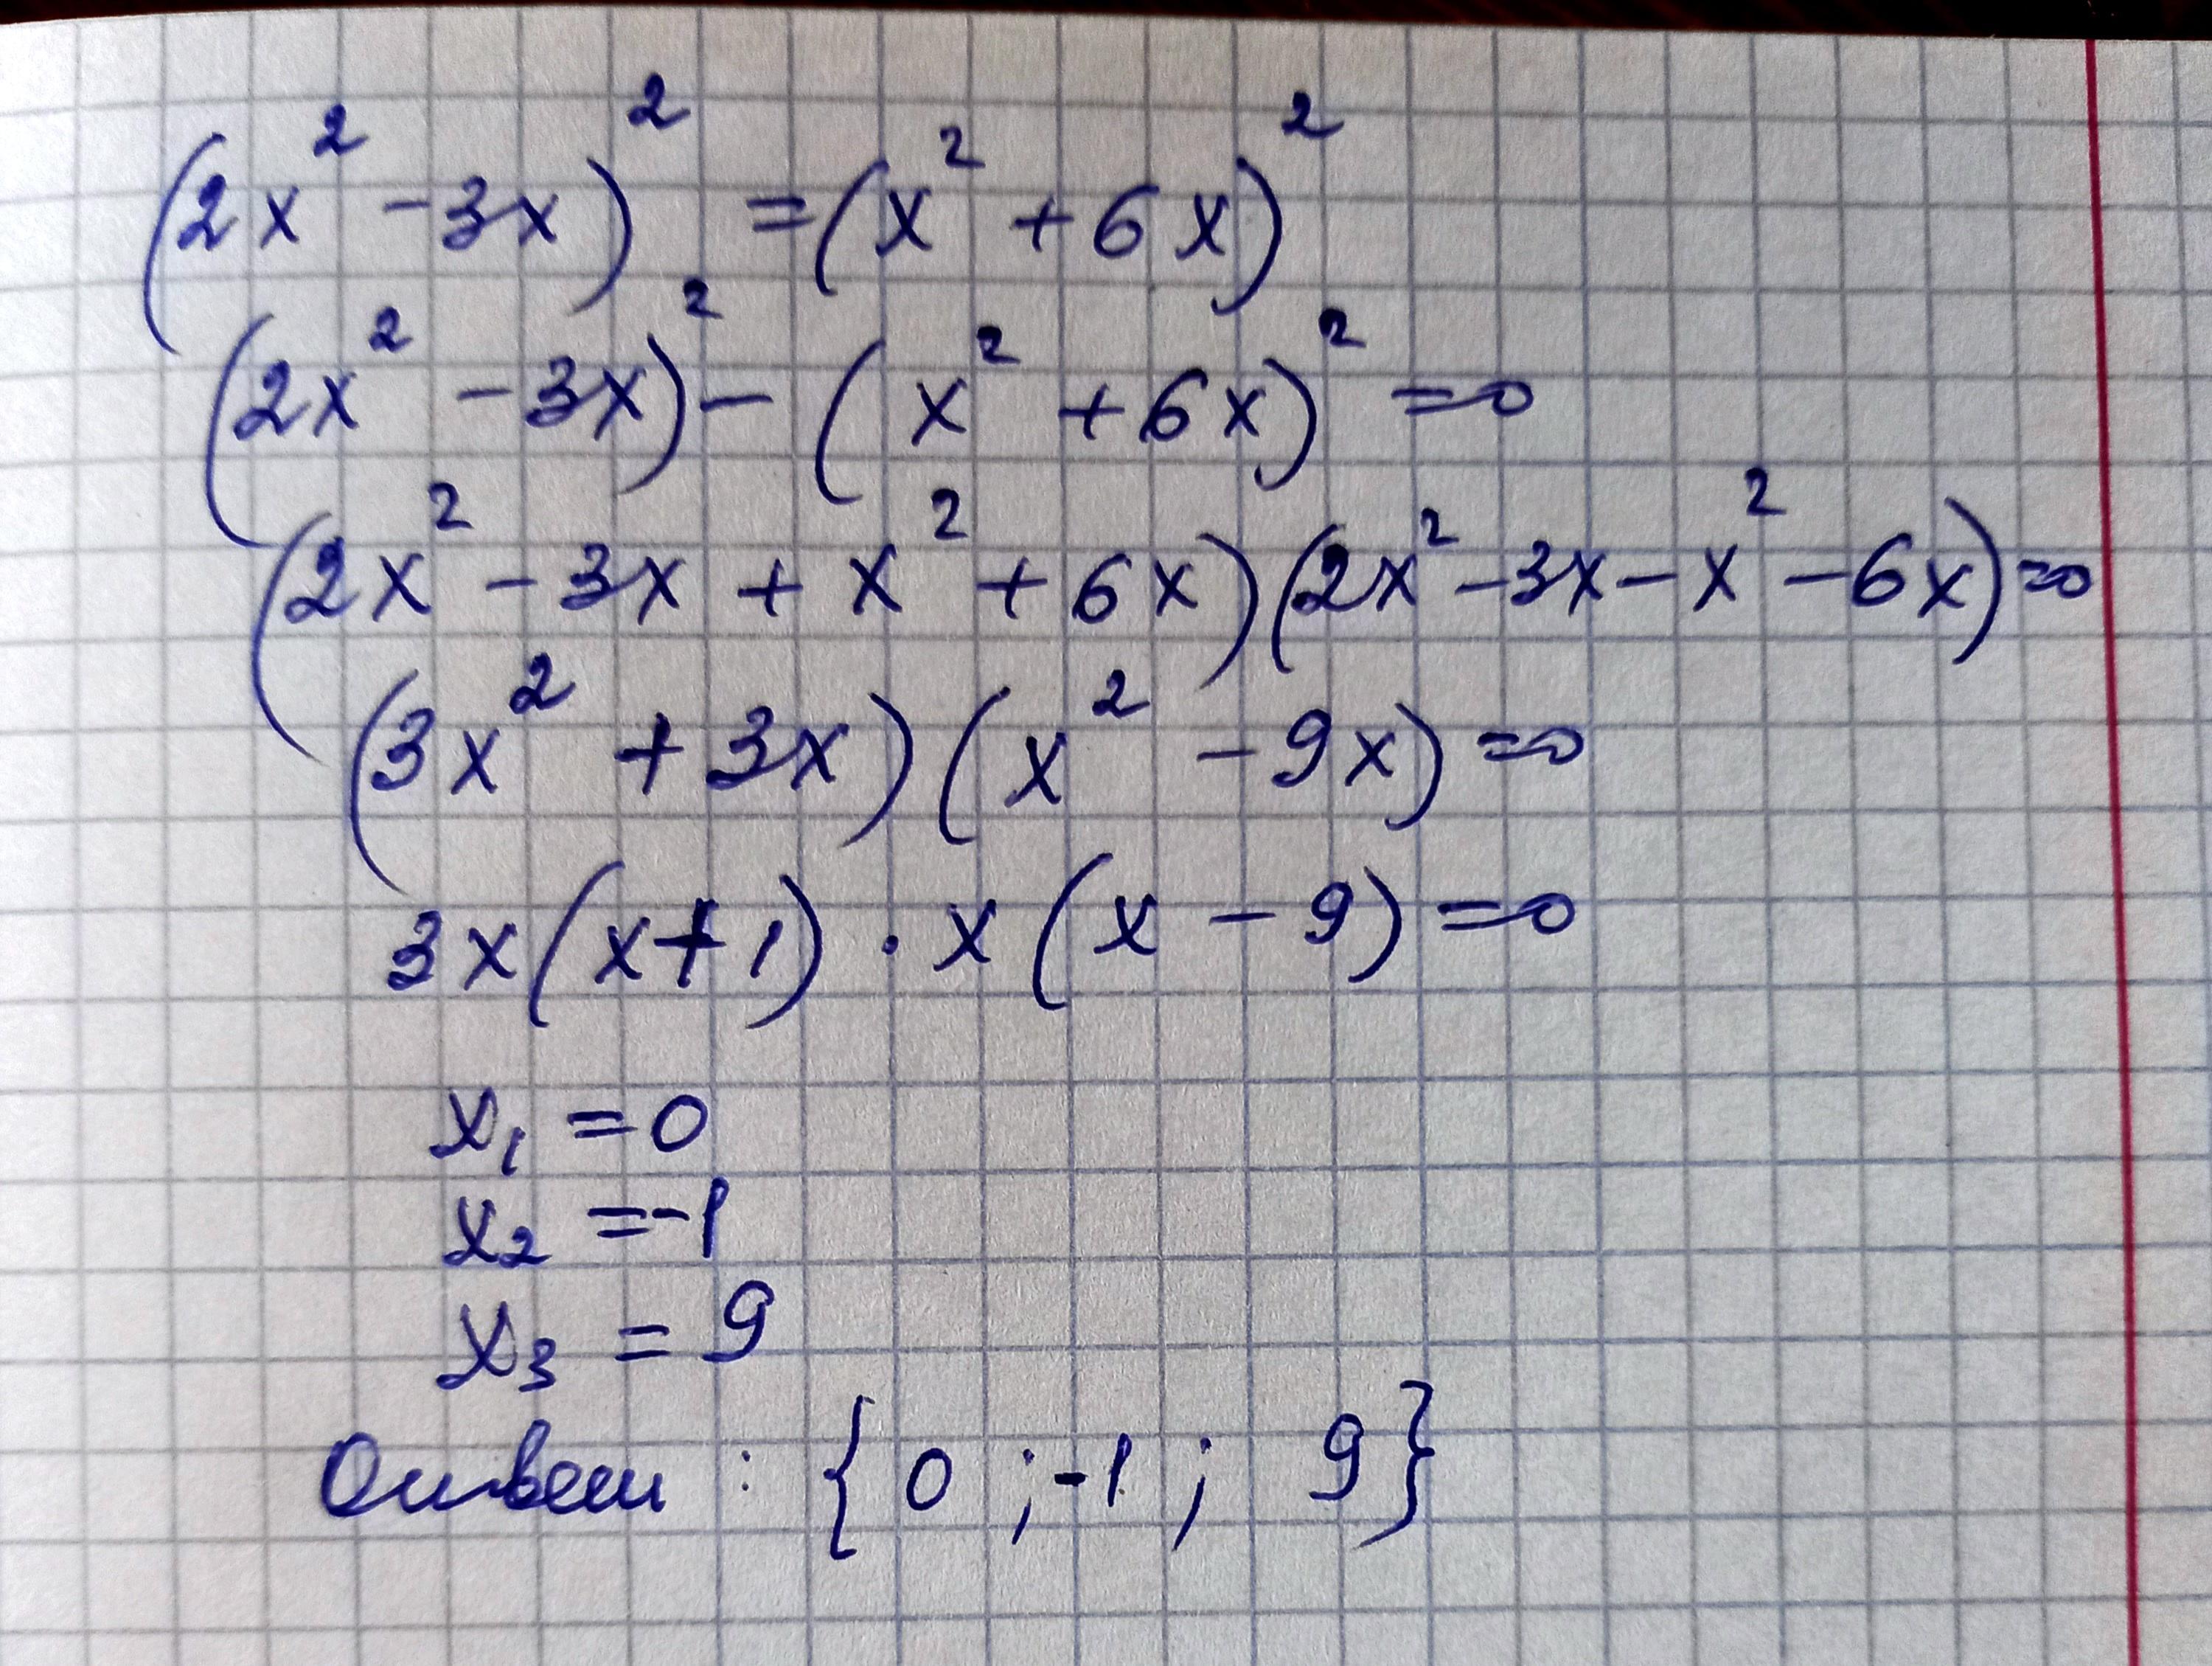 (2x² - 3x)² = (x² + 6x)²
(2x² - 3x)² - (x² + 6x)² = 0
(2x² - 3x + x² + 6x)(2x² - 3x - x² - 6x) = 0
(3x² + 3x)(x² - 9x) = 0
3x(x + 1) · x(x - 9) = 0
x₁ = 0
x₂ = -1
x₃ = 9
Ответ : {0 ; -1 ; 9}